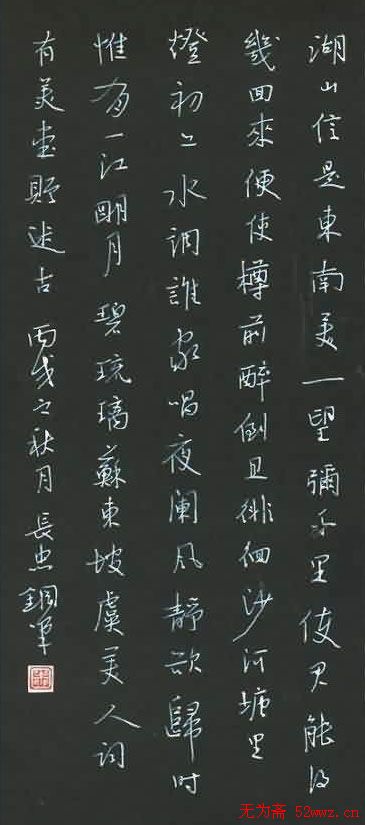 湖山信是東南美一望彌千里使君能得
幾回來便使樽前醉倒且徘徊沙河塘里
燈初上水調誰家唱夜阑风靜欲歸时
惟有一江明月碧琉璃蘇東坡虞美人词
有美堂贈述古 丙戌之秋月長忠鋼筆
无为斋 52wwz.cn